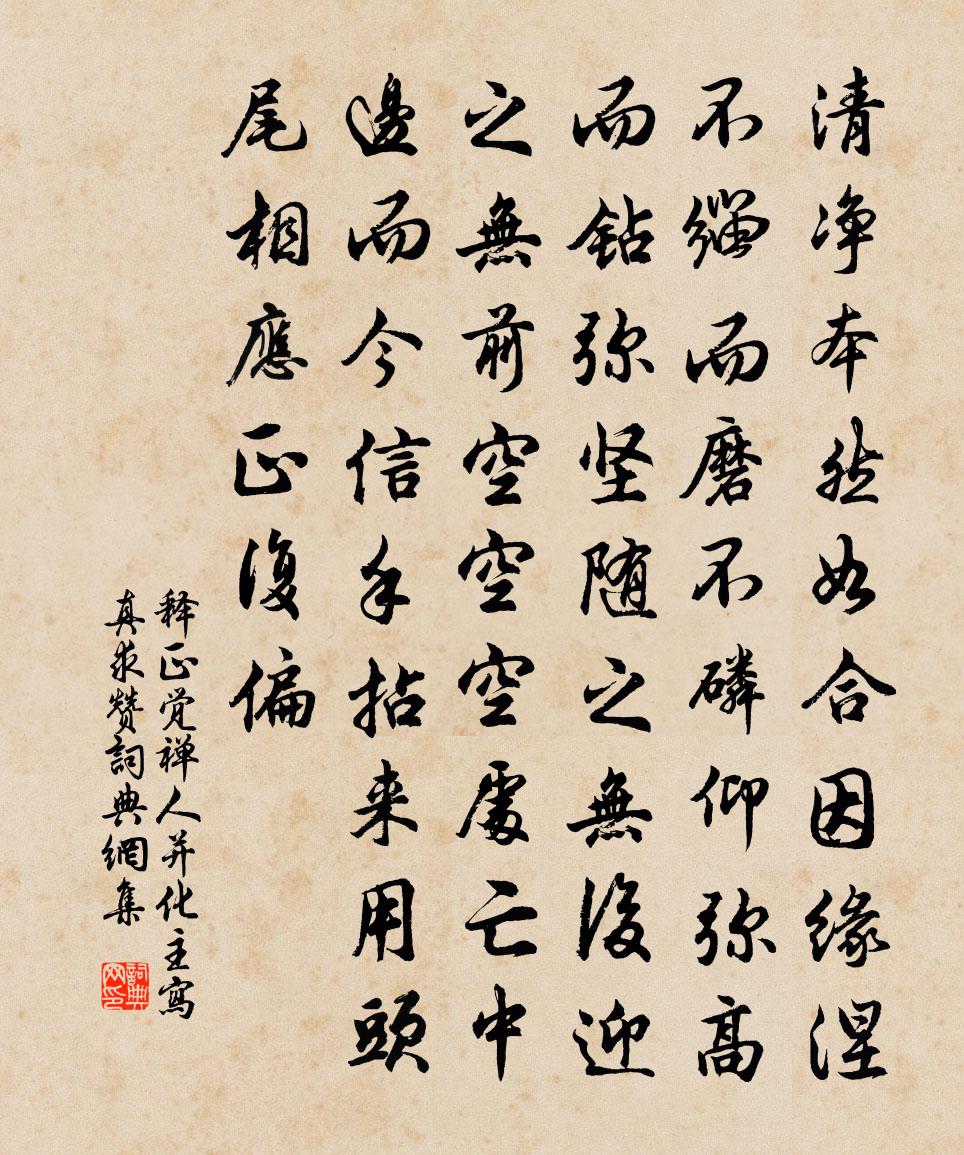 清净本然如合因缘涅
不缁而磨不磷仰弥高
而钻弥坚随之無後迎
之無前空空空處亡中
邊而今信手拈来用頭
尾相應正復偏
释正觉禅人并化主寫
真求赞詞典網集
詞典
网印